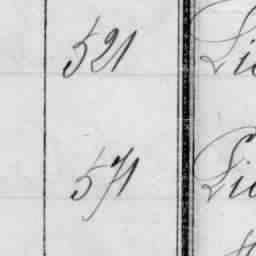 521 Lie
571 Lie